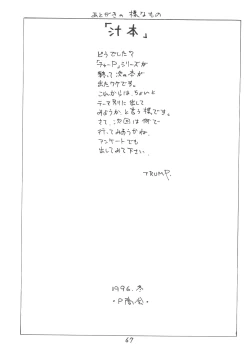 あとがきの様なもの
「汁本」
どうでしたか?
「チャーP」シリーズが
終って、次の本が
出たワケです。
これからは、ちょいと
テーマ別に出して
みようか、と言う様です。
さて、次回は何で
行ってみようかね。
アンケートでも
出してみて下さい。
TRUMP.
1996. 冬
・P隆(会)・
67